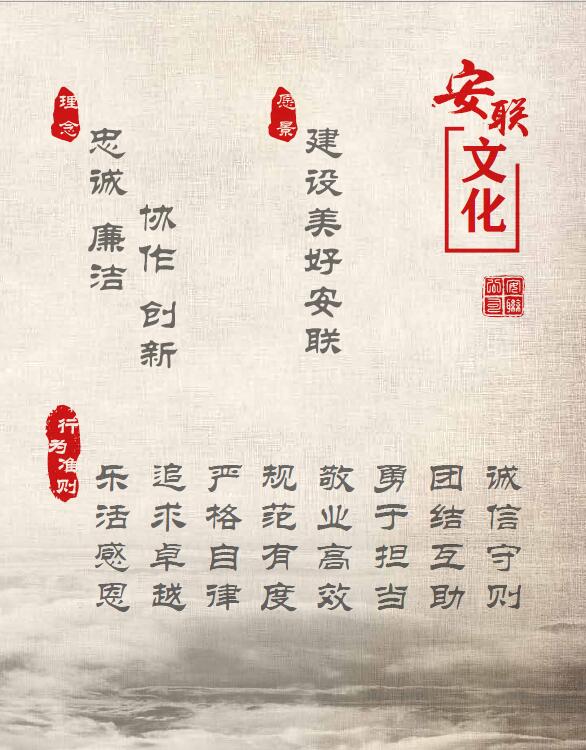 安联
文化
安联
愿景
建设美好安联
理念
协作 创新
忠诚 廉洁
行为准则
诚信守则
团结互助
勇于担当
敬业高效
规范有度
严格自律
追求卓越
乐活感恩